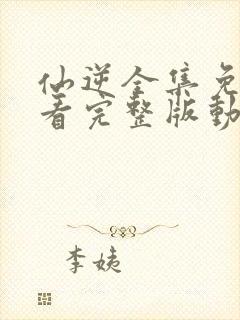 仙逆全集免
看完整版動
李姨